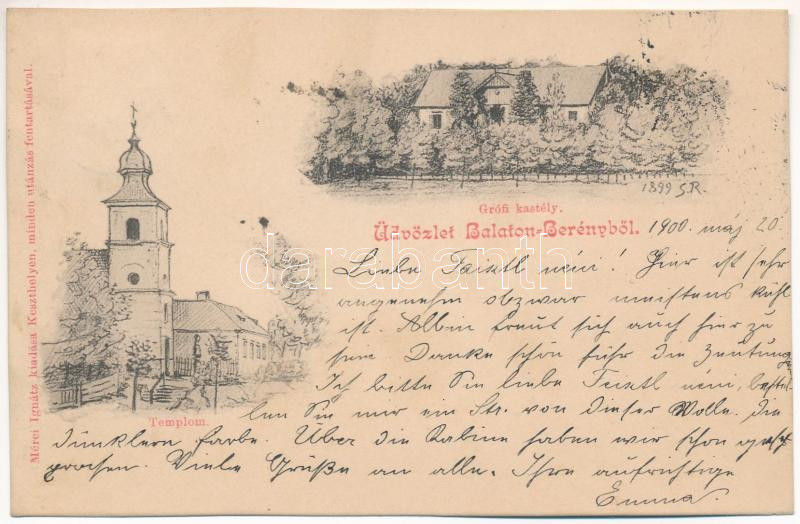 Mérei Ignátz kiadása Keszthelyen, minden utánzás fentartásával.
1899 S.R.
Grófi kastély.
Üdvözlet Balaton-Berényből. 1900. máj 20.
Liebe Teixtl néni! Hier ist sehr
angenehm obzwar meistens kühl
ist. Albin freut sich auch hier zu
sein Danke schön führ die Zeutung
Ich bitte Sie liebe Teixtl néni, bestel-
len Sie mir ein Str. von dieser Wolle. die
dünklern farbe. Über die Rabine haben wir schon gesp
prochen. Viele Grüße an alle. Ihre aufrichtige
Emma.
Templom.
darabanth